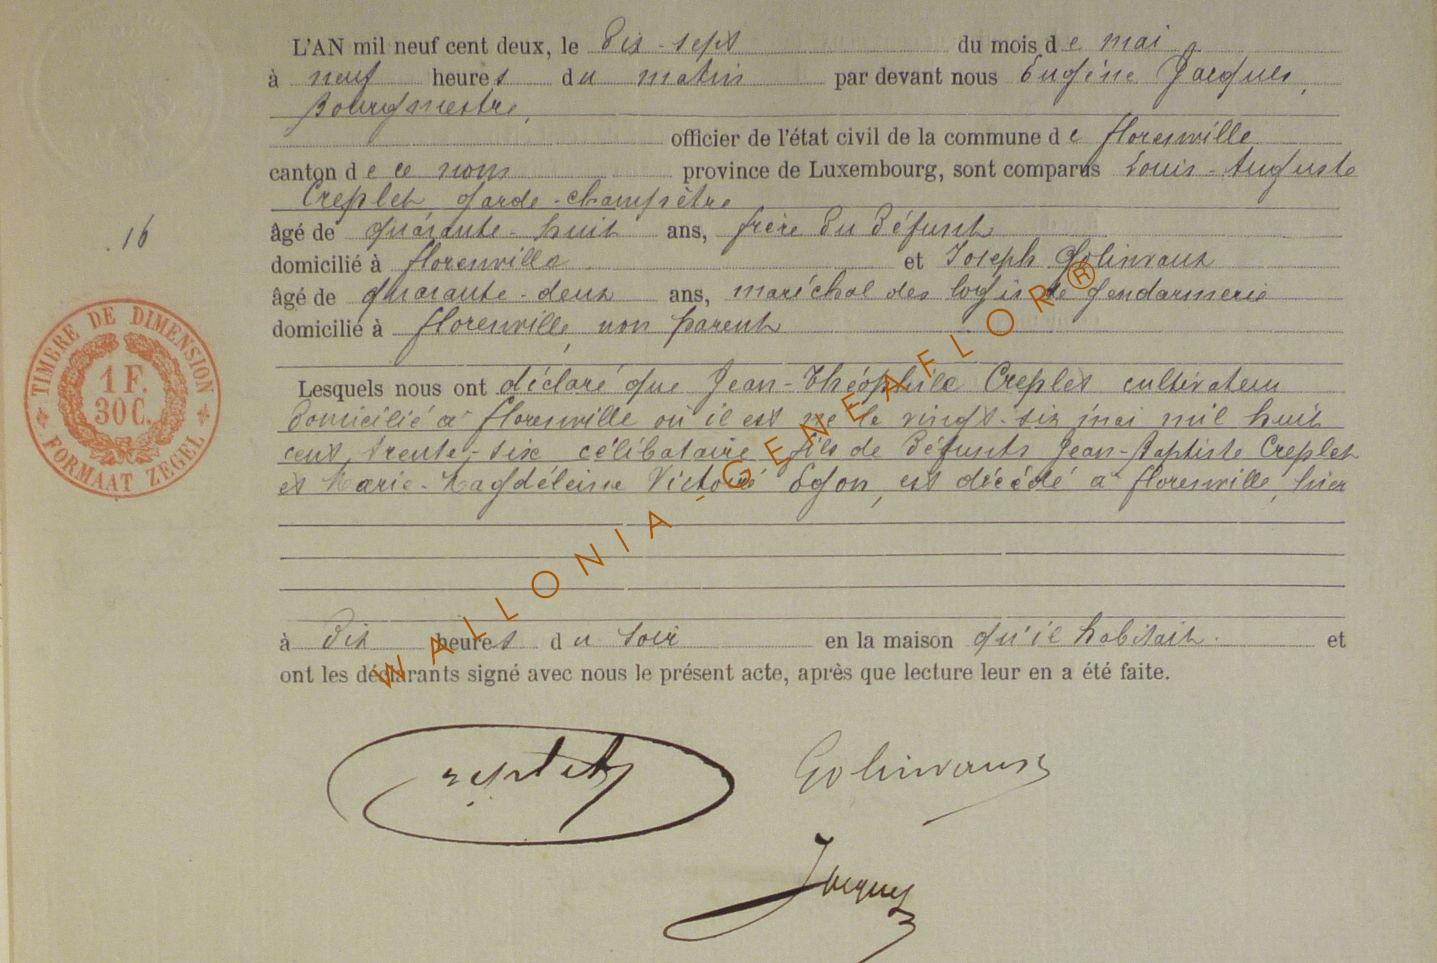 L'AN mil neuf cent deux, le Dix-sept du mois de mai
à neuf heures du matin par devant nous Eugène Jacques,
Bourgmestre,
officier de l'état civil de la commune de florenville
canton de ce nom province de Luxembourg, sont comparus Louis-Auguste
Creplet garde-champêtre
âgé de quarante-huit ans, frère du défunt
16
domicilié à florenville et Joseph Golinvaux
âgé de quarante-deux ans, maréchal des logis de gendarmerie
domicilié à florenville, non parent
Lesquels nous ont déclaré que Jean-Théophile Creplet cultivateur
domicilié à florenville où il est né le vingt-six mai mil huit
cent trente-six célibataire fils de défunts Jean-Baptiste Creplet
et Marie-Magdéleine Victoire, est décédé à florenville, hier
à dix heures du soir en la maison qu'il habitait. et
ont les déclarants signé avec nous le présent acte, après que lecture leur en a été faite.
TIMBRE DE DIMENSION
1 F.
30 C.
FORMAAT ZEGEL
WALLONIA-GENEAFLOR®
Creplet
Golinvaux
Jacques